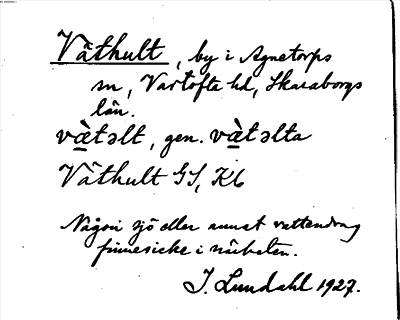 Våthult, by i Agnetorps
sn, Vartofta hd, Skaraborgs
län.
vàtəlt, gen. vàtəlta
Våthult GS, Kb
Någon sjö eller annat vattendrag
finnes icke i närheten.
I. Lundahl 1927.